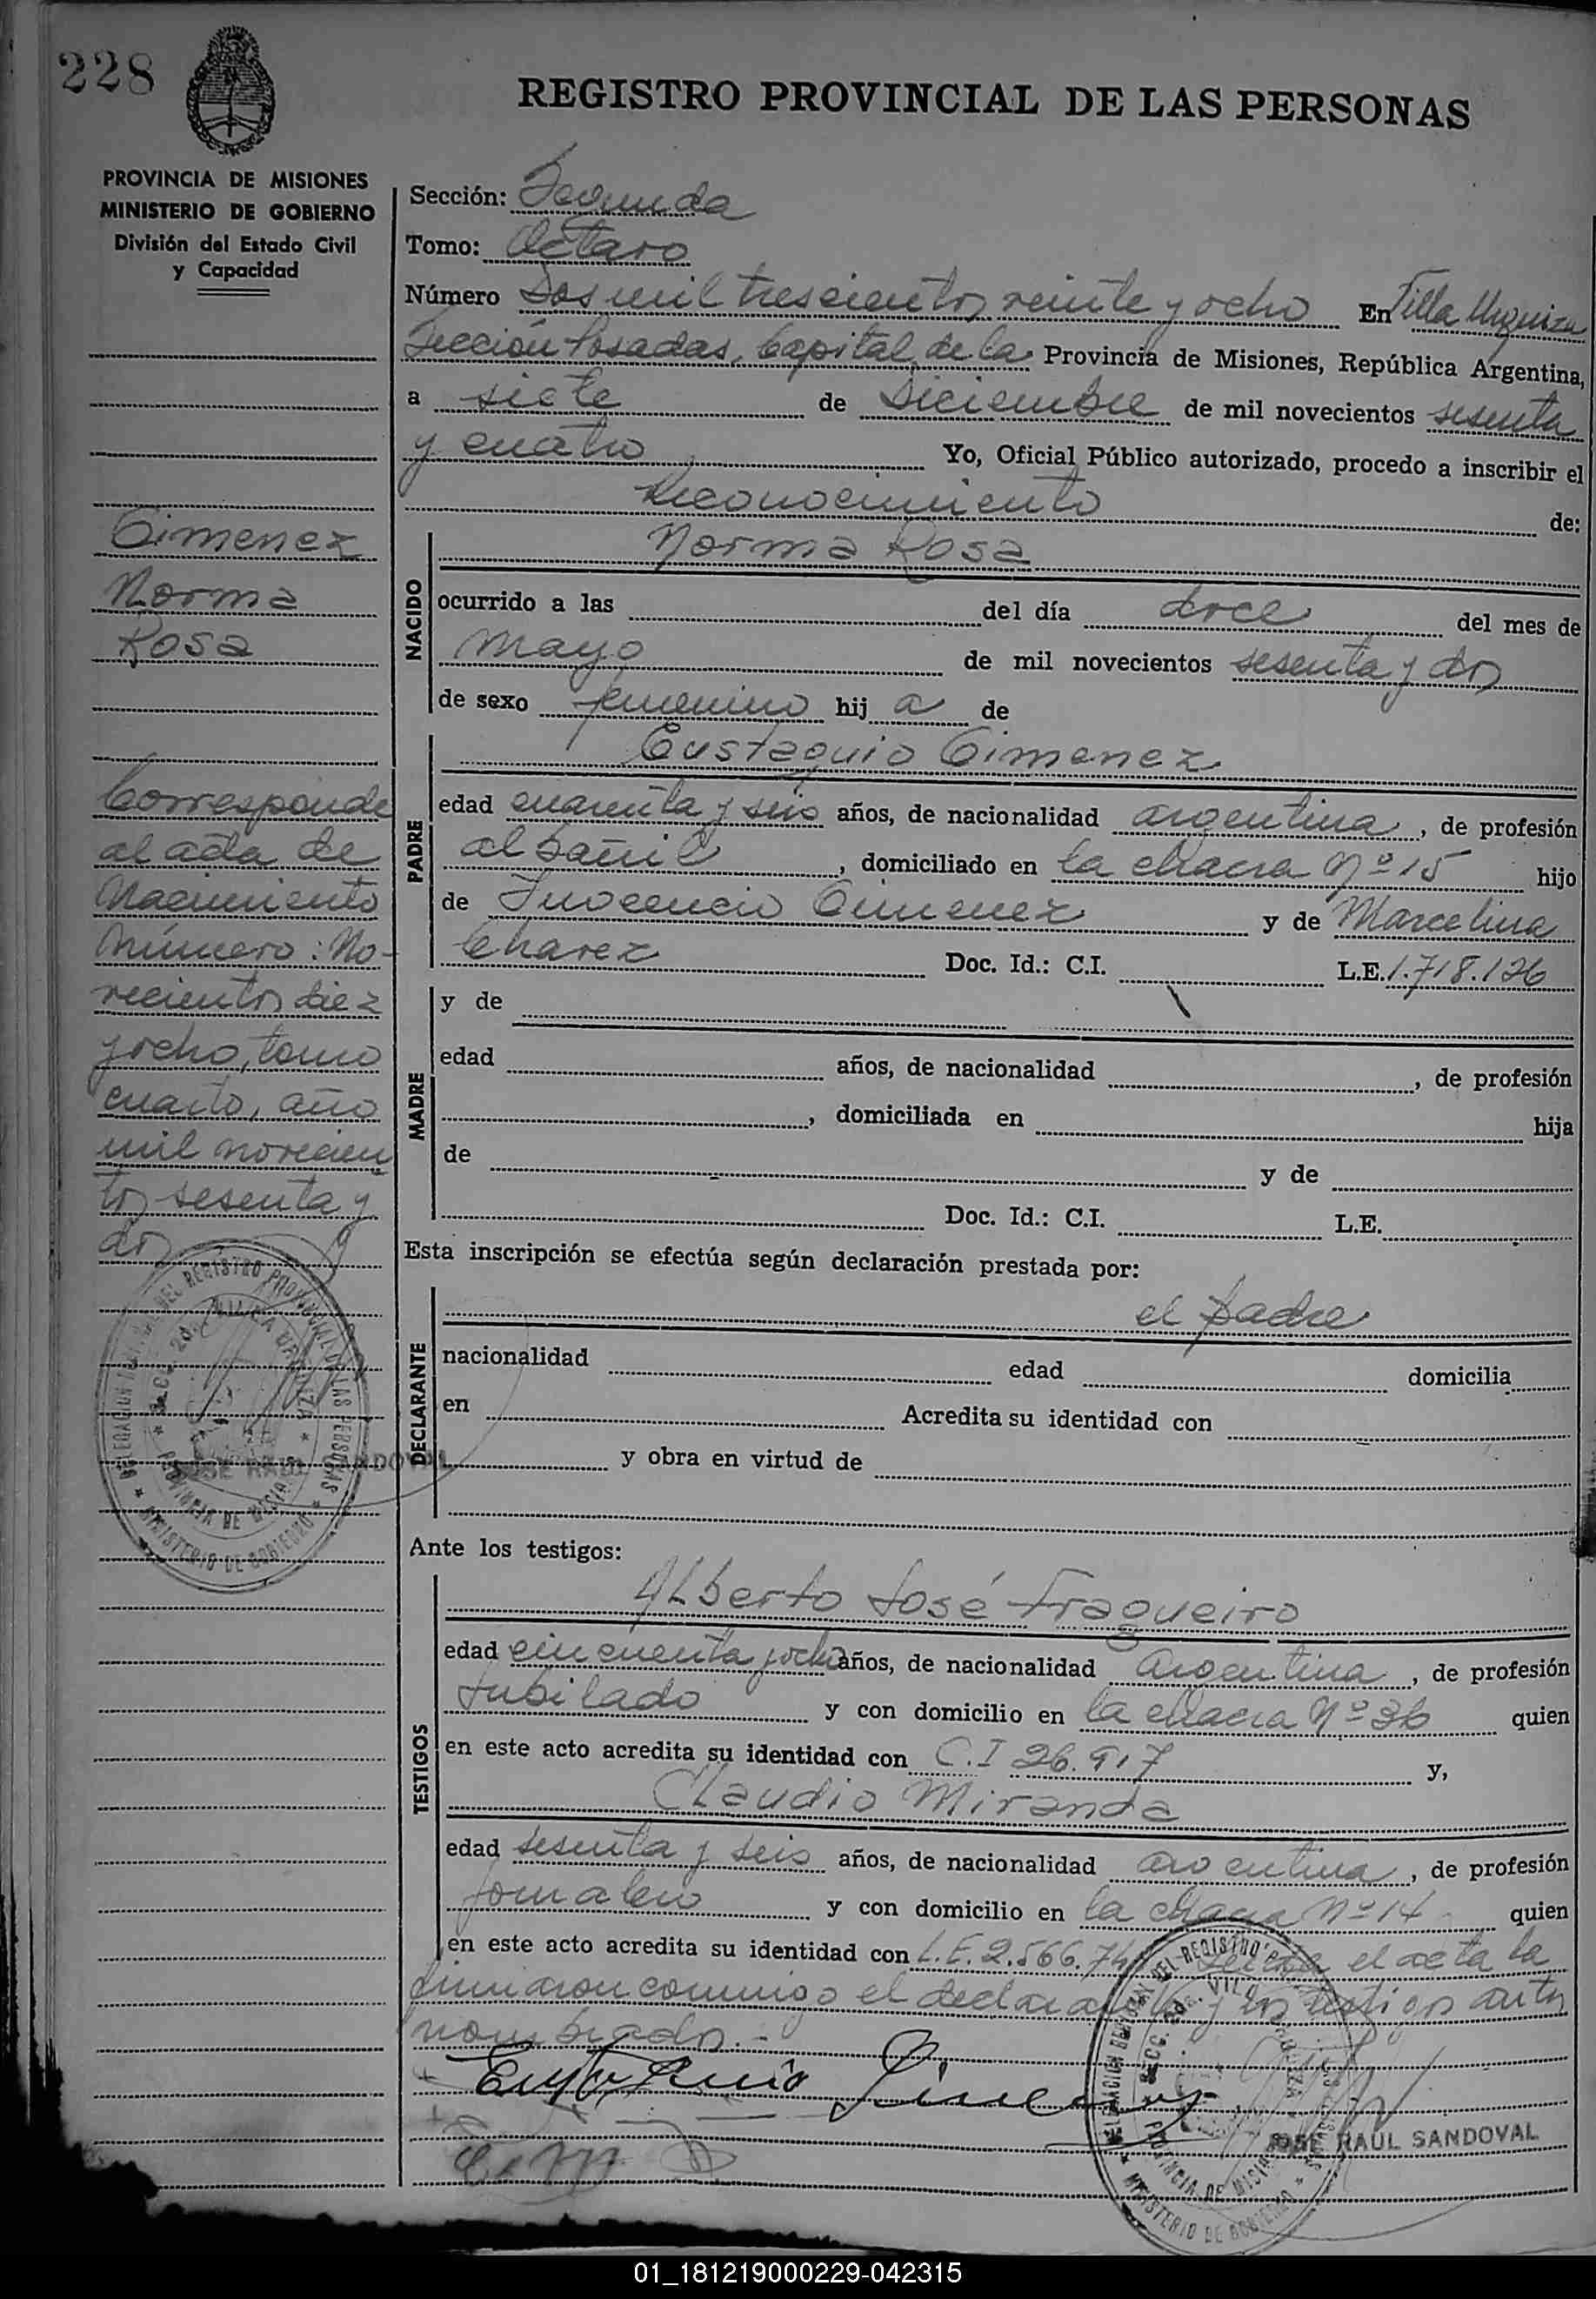 228
REGISTRO PROVINCIAL DE LAS PERSONAS
PROVINCIA DE MISIONES
MINISTERIO DE GOBIERNO
División del Estado Civil
y Capacidad
Gimenez
Norma
Rosa
Corresponde
al acta de
Nacimiento
número: No-
vecientos diez
y ocho, tomo
cuarto, año
mil novecien
tos sesenta y
dos
Sección: Segunda
Tomo: Octavo
Número Dos mil trescientos veinte y ocho En Villa Urquiza
Sección Posadas, Capital de la Provincia de Misiones, República Argentina,
a siete de Diciembre de mil novecientos sesenta
y cuatro Yo, Oficial Público autorizado, procedo a inscribir el
Reconocimiento de:
NACIDO
Norma Rosa
ocurrido a las del día doce del mes de
mayo de mil novecientos sesenta y dos
de sexo femenino hij a de
PADRE
Eustaquio Gimenez
edad cuarenta y seis años, de nacionalidad argentina, de profesión
albañil, domiciliado en la chacra Nº 15 hijo
de Inocencio Gimenez y de Marcelina
Chavez Doc. Id.: C.I. L.E. 1.718.126
MADRE
y de
edad años, de nacionalidad , de profesión
, domiciliada en hija
de y de
Doc. Id.: C.I. L.E.
Esta inscripción se efectúa según declaración prestada por:
DECLARANTE
el padre
nacionalidad edad domicilia
en Acredita su identidad con
y obra en virtud de
Ante los testigos:
TESTIGOS
Alberto José Fragueiro
edad cincuenta y ocho años, de nacionalidad Argentina, de profesión
Jubilado y con domicilio en la chacra Nº 36 quien
en este acto acredita su identidad con C.I 26.917 y,
Claudio Miranda
edad sesenta y seis años, de nacionalidad argentina, de profesión
jornalero y con domicilio en la chacra Nº 14 quien
en este acto acredita su identidad con L.E. 2.566. el acta la
firmaron conmigo el declarante y los testigos antes
nombrados.-
Eustaquio Gimenez
JOSE RAUL SANDOVAL
JOSE RAUL SANDOVAL
DELEGACION DEL REGISTRO PROVINCIAL DE LAS PERSONAS
SECC. 2da. VILLA URQUIZA
PROVINCIA DE MISIONES
MINISTERIO DE GOBIERNO
01_181219000229-042315